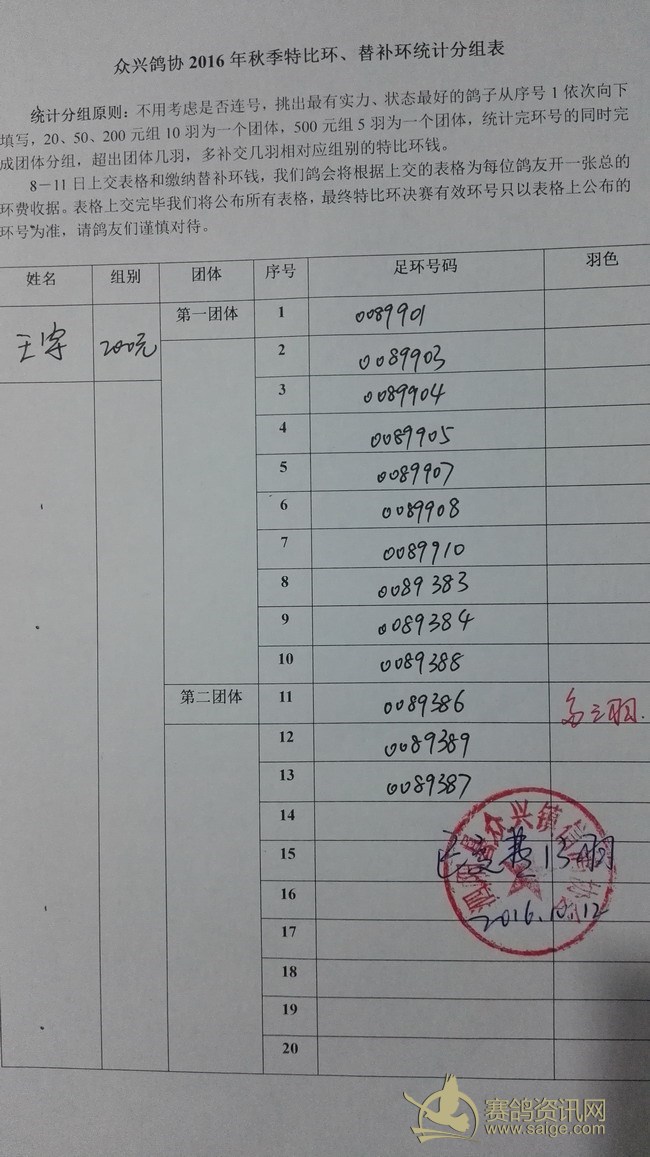 众兴鸽协 2016 年秋季特比环、替补环统计分组表
统计分组原则：不用考虑是否连号，挑出最有实力、状态最好的鸽子从序号 1 依次向下
填写，20、50、200 元组 10 羽为一个团体，500 元组 5 羽为一个团体，统计完环号的同时完
成团体分组，超出团体几羽，多补交几羽相对应组别的特比环钱。
8－11 日上交表格和缴纳替补环钱，我们鸽会将根据上交的表格为每位鸽友开一张总的
环费收据。表格上交完毕我们将公布所有表格，最终特比环决赛有效环号只以表格上公布的
环号为准，请鸽友们谨慎对待。
姓名 组别 团体 序号 足环号码 羽色
王宇 200元 第一团体 1 0089901
2 0089903
3 0089904
4 0089905
5 0089907
6 0089908
7 0089910
8 0089383
9 0089384
10 0089388
第二团体 11 0089386 多三羽.
12 0089389
13 0089387
14
15 13羽
16 2016.10.12
17
18
19
20
众兴镇
赛鸽资讯网
www.saige.com